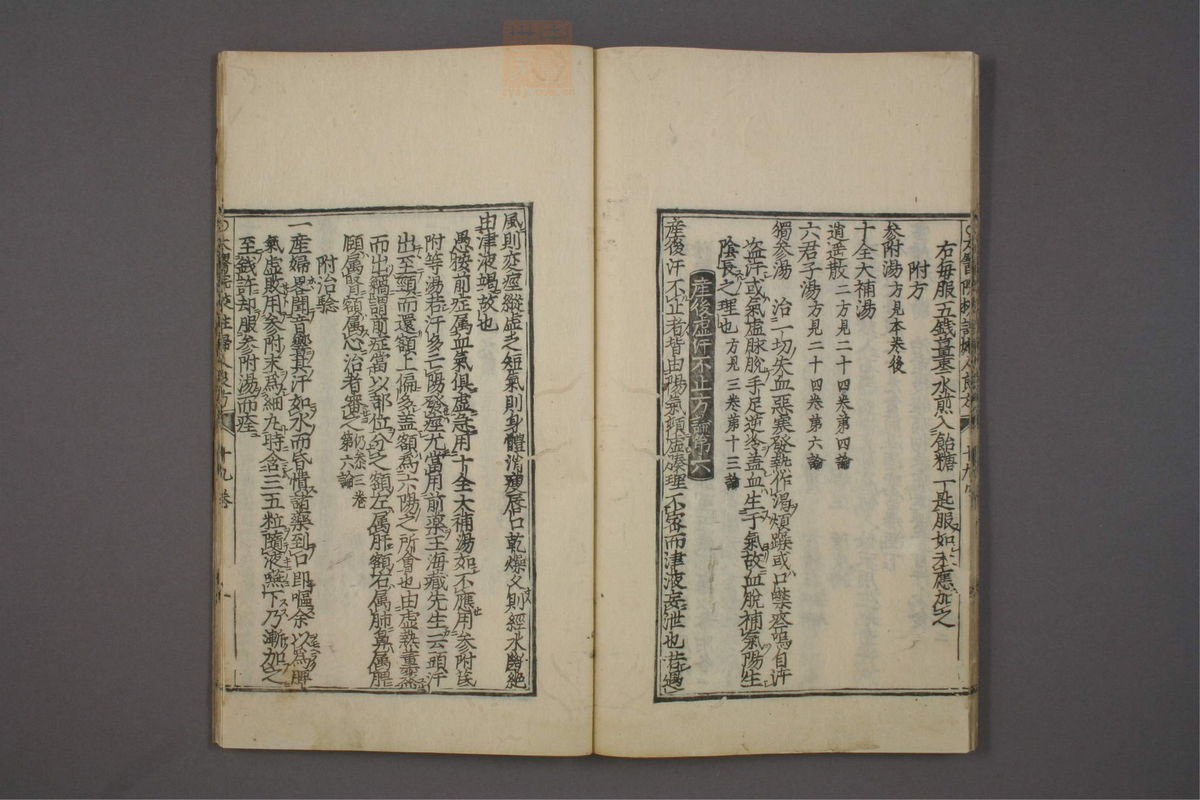 右每服五錢薑棗水煎入飴糖一匙服如不應加之
附方
參附湯方見本卷後
十全大補湯
逍遙散二方見二十四卷第四論
六君子湯方見二十四卷第六論
獨參湯 治一切失血惡寒發熱作渴煩躁或口噤痰鳴自汗
盗汗或氣虛脉脫手足逆冷蓋血生于氣故血脫補氣陽生
陰長之理也方見三卷第十三論
産後虛汗不止方論第六
産後汗不止者皆由陽氣頓虛腠理不密而津液妄泄也若遇
風則変痙縱虛乏短氣則身體消瘦唇口乾燥久則經水斷絕
由津液竭故也
愚按前症属血氣俱虛急用十全大補湯如不應用參附芪
附等湯若汗多亡陽發痙尤當用前藥王海藏先生云頭汗
出至頸而還額上偏多盖額爲六陽之所會也由虛熱熏蒸
而出竊謂前症當以部位分之額左属肝額右属肺鼻属脾
頤属腎額属心治者審之仍參三卷第六論
附治驗
一産婦畧聞音響其汗如水而昏憒諸藥到口即嘔余以爲脾
氣虛敗用參附末爲細丸時含三五粒隨液嚥下乃漸加之
至錢許却服參附湯而痊
十九卷